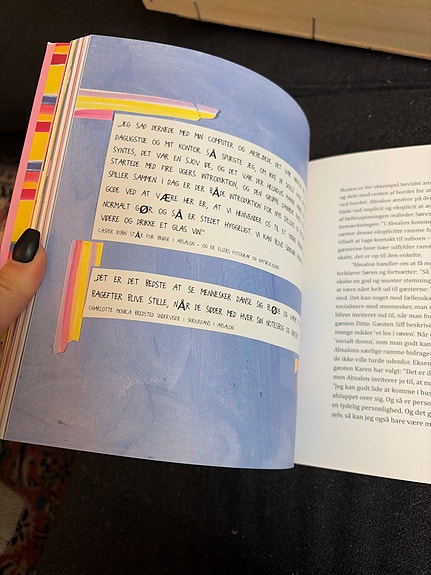 „JEG SAD DERNEDE MED MIN COMPUTER OG ARBEJDEDE. DET VAR
DAGLIGSTUE OG MIT KONTOR. SÅ SPURGTE JEG, OM IKKE VI SKULLE
SYNTES, DET VAR EN SJOV IDE, OG DET VAR DER HELDIGVIS MANGE
STARTEDE MED FIRE UGERS INTRODUKTION, OG DEN GRUPPE DANNEDE
SPILLER SAMMEN I DAG. ER DER BÅDE INTRODUKTION FOR NYE SPILLERE
GODE VED AT VÆRE HER ER, AT VI HENVENDER OS TIL ET
NORMALT GØR OG SÅ ER STEDET HYGGELIGT. VI KAN BLIVE SIDDENDE
VIDERE OG DRIKKE ET GLAS VIN"
CASPER STÅR FOR BRIDGE I ABSALON – OG ER ELLERS FOTOGRAF OG
„DET ER DET BEDSTE AT SE MENNESKER DANSE SIG BLØDE OG VARME
BAGEFTER BLIVE STILLE, NÅR DE SIDDER MED HVER SIN NOTESBOG OG
CHARLOTTE MONICA BREDSTED UNDERVISER I SKRIVEDANS I ABSALON
Maden er for eksempel bevidst
og dele med resten af bordet for at
ved bordet, Absalon ændrer på den
både ved implicit og eksplicit at
af fællesspisningen indleder Søren
bemærkningen: "I Absalon kommer
sætter denne eksplicitte ramme for
tilladt at tage kontakt til naboen –
gæsterne hver især udfylder rammen
skalt, det er op til den enkelte.
"Absalon handler om at få m
forklarer Søren og fortsætter: "Så
skabe en god og munter stemning
at være nået helt ud til gæsterne:
sted. Det kan noget med fællesskab
socialisere med mennesker, man i
bliver inviteret ind til, når man for
gæsten Ditte. Gæsten Siff beskriver
mange måder 'at los i røven'. Når
'socialt doven', som man godt kan
Absalons særlige ramme bidrager
de ikke ville turde udenfor. Eksem
gæsten Karen har valgt: "Det er ik
men Absalon inviterer jo til, at m
"Jeg kan godt lide at komme i hus
afslappet over sig. Og så er person
en tydelig personlighed. Og det g
selv, så kan jeg også bare være m